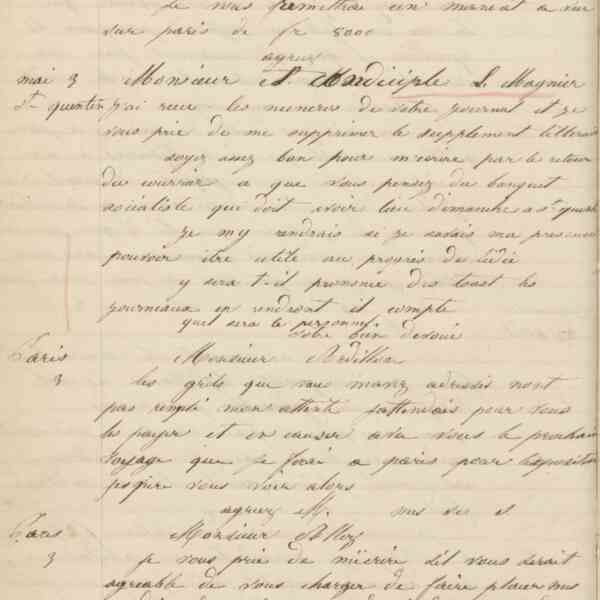 Je vous remettrai un mandat a vue
sur paris de fr 8000
agreez
mai 3 Monsieur et Condiciple L. Magnier
St quentin J'ai reçu les numeros de votre journal et je
vous prie de me supprimer le supplement litterair
soyez assez bon pour m'ecrire par le retour
du courrier ce que vous pensez du banquet
socialiste qui doit avoir lieu dimanche a St quentin
Je my rendrais si je savais ma presence
pouvoir être utile au progrès de l'idée
y sera t-il prononcé des toast les
journeaux en rendront il compte
quel sera le personnel
votre bien devoué
Paris Monsieur
3 les grils que vous mavez adressés n'ont
pas rempli mon attente j'attendais pour vous
les payer et en causer avec vous le prochain
voyage que je ferai a paris pour l'exposition
j'espère vous voir alors
agreez M. mes
Paris Monsieur
3 je vous prie de m'ecrire s'il vous serait
agreable de vous charger de faire placer mes